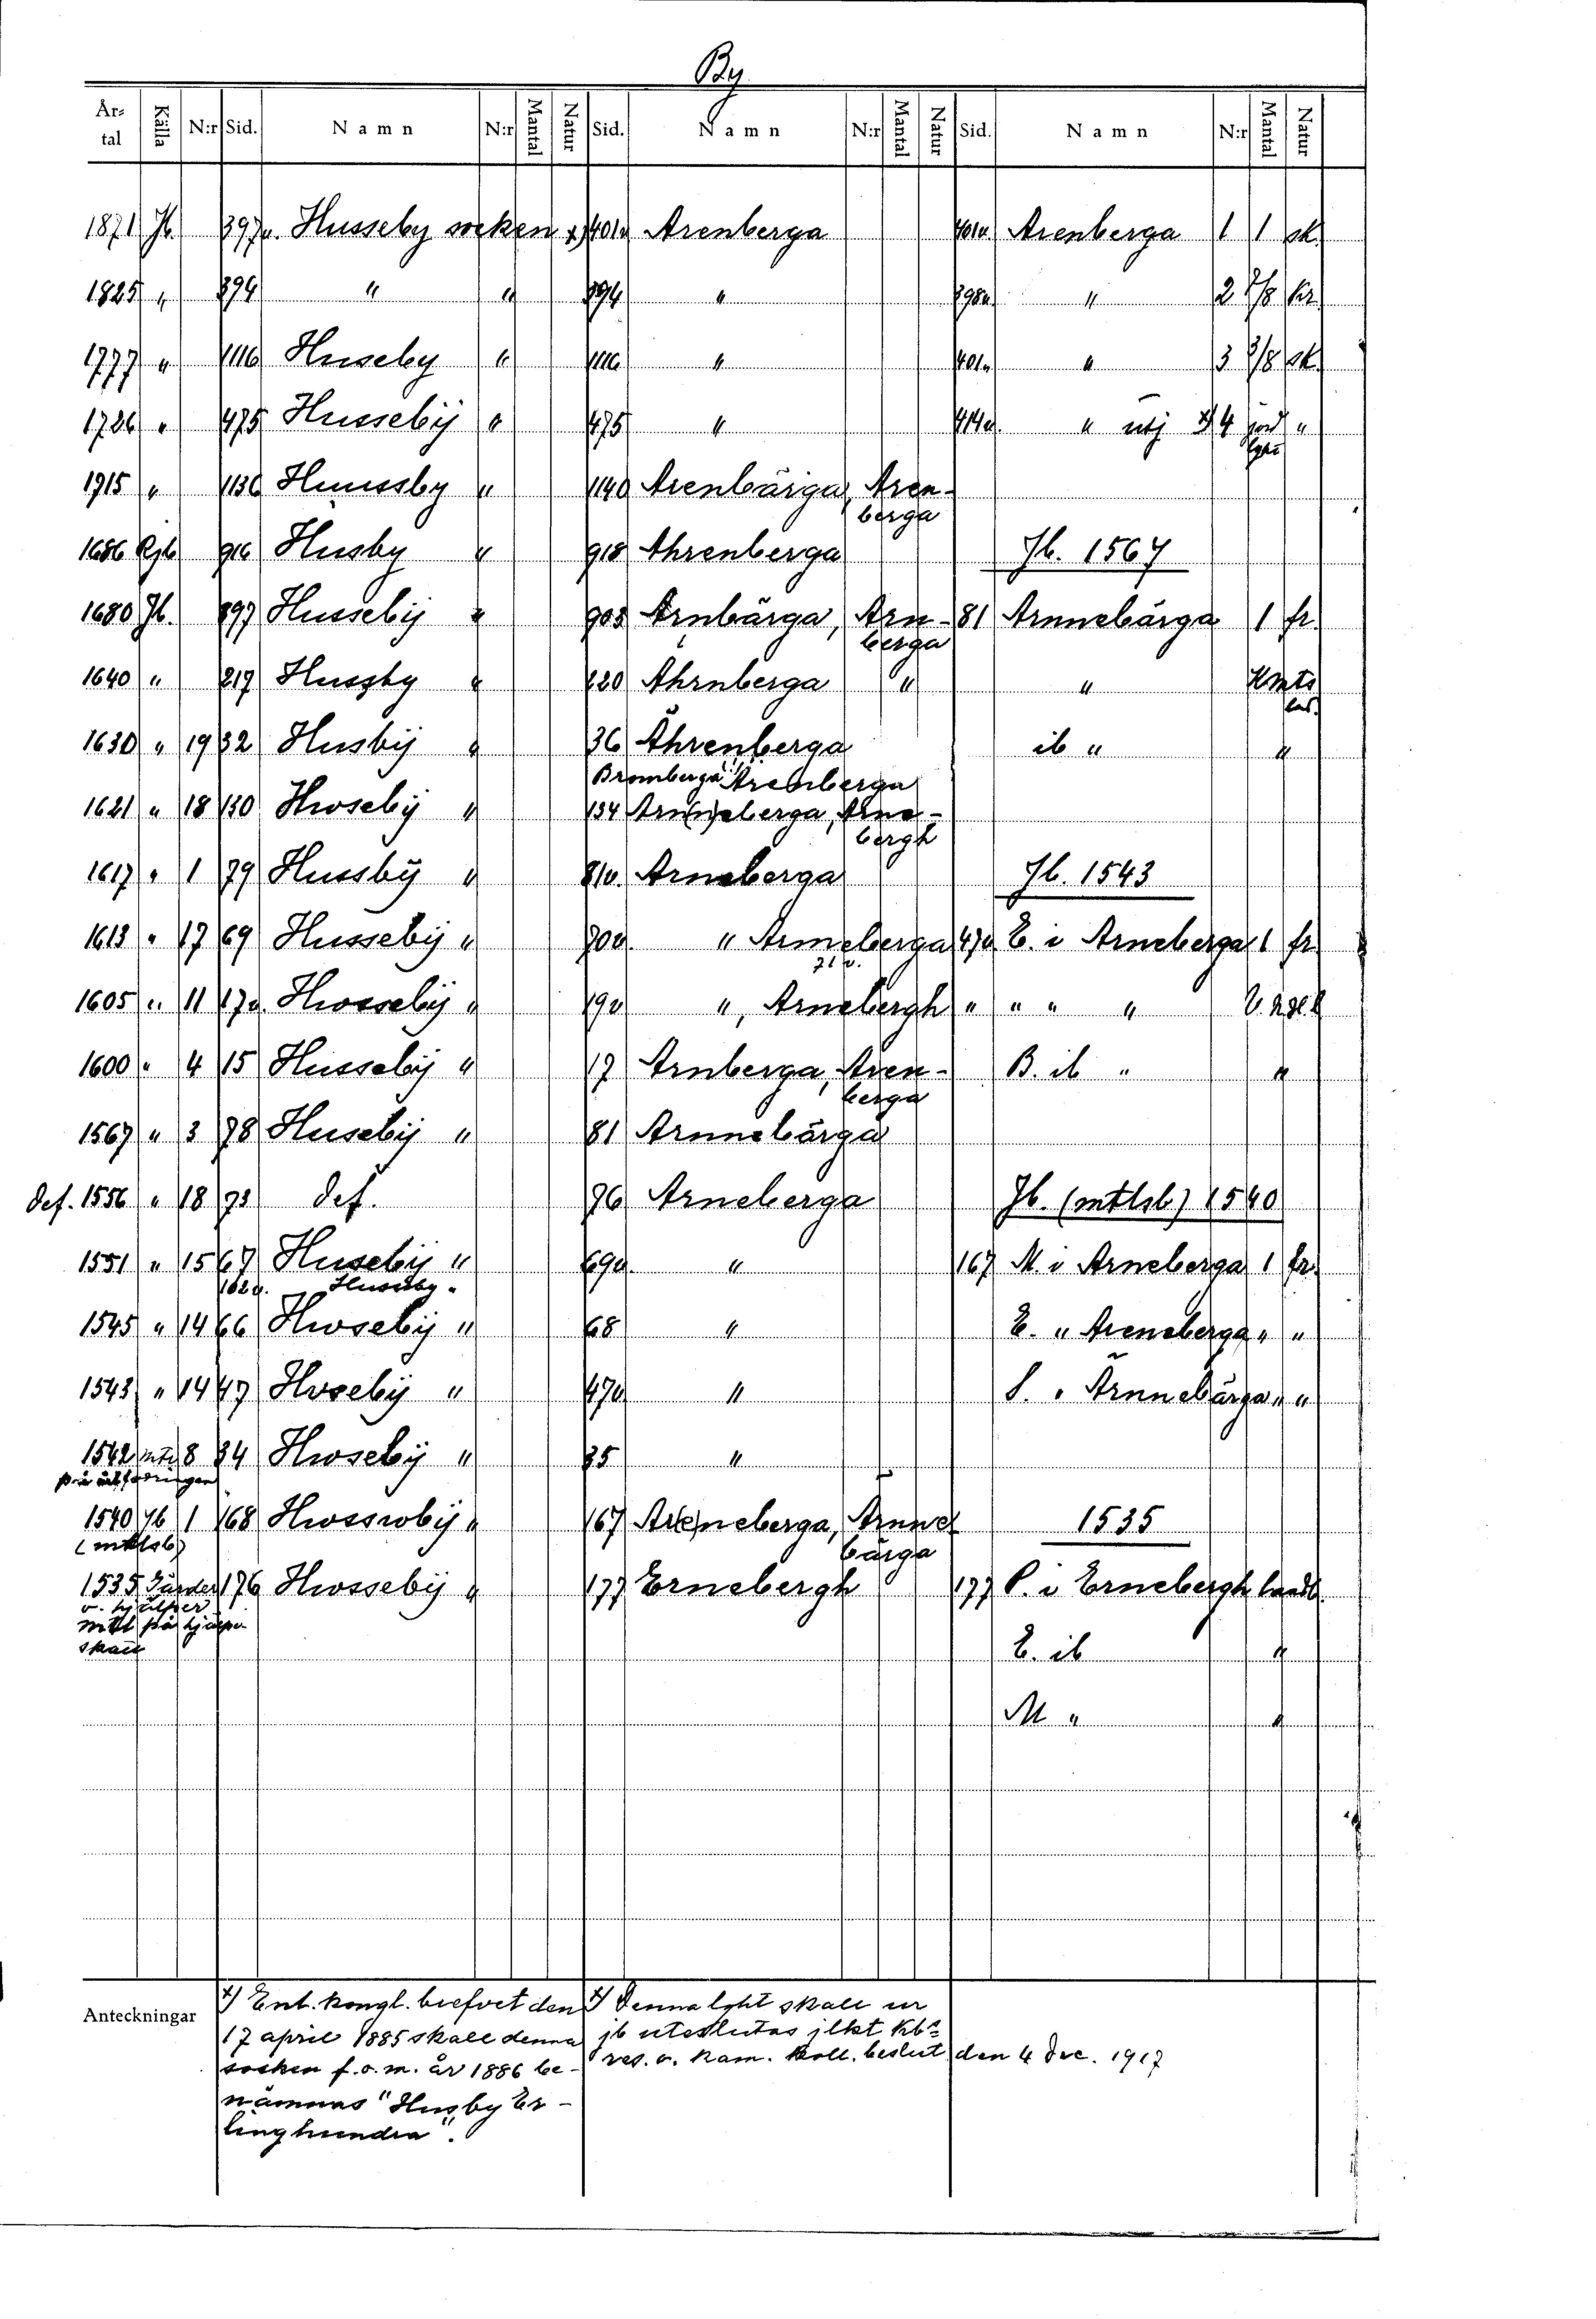 By
År-tal Källa N:r Sid. Namn N:r Mantal Natur Sid. Namn N:r Mantal Natur Sid. Namn N:r Mantal Natur
1871 Jb. 397v. Husseby socken x) 401v Arenberga 401v. Arenberga 1 1 sk.
1825 " 394 " " 394 " 398v " 2 7/8 kr.
1777 " 1116 Huseby " 1116 " 401v " 3 7/8 sk.
1726 " 475 Hussebÿ " 475 " 414v. " utj x) 4 jord "
lght
1915 " 1136 Huussby " 1140 Arenbärga, Aren-
berga
1686 Rjb 916 Husby " 918 Ahrenberga Jb. 1567
1680 Jb. 897 Hussebÿ " 903 Arnbärga, Arn- 81 Arnnebärga 1 fr.
berga
1640 " 217 Huszby " 220 Ahrnberga " "
1630 " 19 32 Husbÿ " 36 Åhrenberga ib " "
Bromberga Arenberga
1621 " 18 130 Hwsebÿ " 134 Arn(n)eberga, Arne-
bergh
1617 " 1 79 Hussbÿ " 81v. Arneberga Jb. 1543
1613 " 17 69 Hussebÿ " 70v. " Armeberga 47v. E. i Arneberga 1 fr.
71v.
1605 " 11 17v. Hwssebÿ " 19v ", Arnebergh " " " "
1600 " 4 15 Hussebÿ " 17 Arnberga, Aren- B. ib " "
berga
1567 " 3 78 Husebÿ " 81 Arnnebärga
def. 1556 " 18 73 def. 76 Arneberga Jb. (mtlsb) 1540
1551 " 15 67 Husebÿ " 69v. " 167 M. i Arneberga 1 fr.
162v. Huseby "
1545 " 14 66 Hwsebÿ " 68 " E. " Areneberga " "
1543 " 14 47 Hvsebÿ " 47v " S. " Ärnnebärga " "
1542 8 34 Hwsebÿ " 35 "
1540 Jb 1 168 Hwsswbÿ " 167 Ar(e)neberga, Arnne
(mtlsb) bärga 1535
1535 Gärder 176 Hwssebÿ " 177 Ernebergh 177 P. i Ernebergh landb.
o. hjälper
mtl på hjälpe-
skatt E. ib "
M " "
Anteckningar
x) Enl. kongl. brefvet den
17 april 1885 skall denna
socken f.o.m. år 1886 be-
nämnas "Husby Er-
linghundra".
x) Denna lght skall ur
jb uteslutas jlkt kbs
res. o. Kam. Koll. beslut den 4 dec. 1917